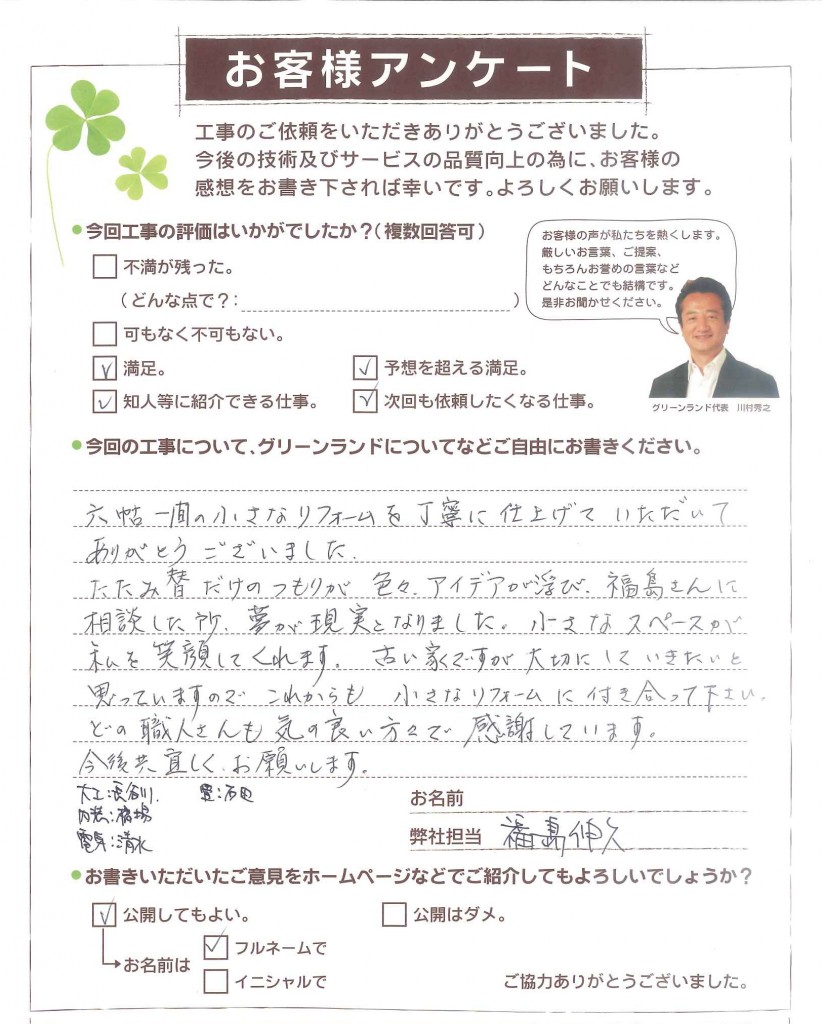 お客様アンケート
工事のご依頼をいただきありがとうございました。
今後の技術及びサービスの品質向上の為に、お客様の
感想をお書き下されば幸いです。よろしくお願いします。
今回工事の評価はいかがでしたか？（複数回答可）
不満が残った。
（どんな点で？：　）
可もなく不可もない。
満足。
予想を超える満足。
知人等に紹介できる仕事。
次回も依頼したくなる仕事。
お客様の声が私たちを熱くします。
厳しいお言葉、ご提案、
もちろんお誉めの言葉など
どんなことでも結構です。
是非お聞かせください。
グリーンランド代表　川村秀之
今回の工事について、グリーンランドについてなどご自由にお書きください。
六帖一間の小さなリフォームを丁寧に仕上げていただいて
ありがとうございました。
たたみ替だけのつもりが色々、アイデアが浮び、福島さんに
相談した所、夢が現実となりました。小さなスペースが
私を笑顔してくれます。古い家ですが大切にしていきたいと
思っていますので これからも 小さなリフォームに付き合って下さい。
どの職人さんも気の良い方々で感謝しています。
今後共宜しくお願いします。
大工：長谷川　畳：石田
内装：稲場
電気：清水
お名前
弊社担当 福島伸久
お書きいただいたご意見をホームページなどでご紹介してもよろしいでしょうか？
公開してもよい。
公開はダメ。
お名前は
フルネームで
イニシャルで
ご協力ありがとうございました。